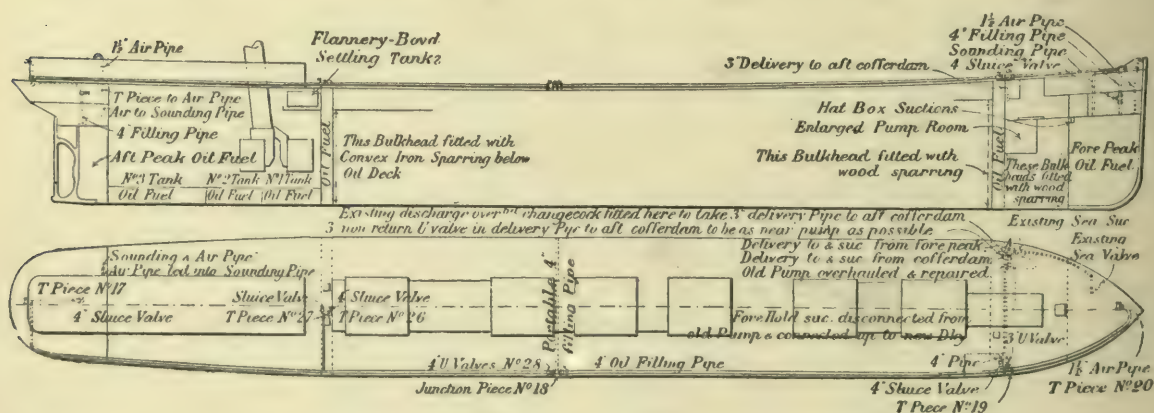 1½ Air Pipe
Flannery-Boyd
Settling Tanks
1½ Air Pipe
4" Filling Pipe
Sounding Pipe
4" Sluice Valve
3" Delivery to aft cofferdam
T Piece to Air Pipe
Air to Sounding Pipe
4" Filling Pipe
Aft Peak Oil Fuel
Nº3 Tank
Oil Fuel
Nº2 Tank
Oil Fuel
Nº1 Tank
Oil Fuel
Oil Fuel
This Bulkhead fitted with
Convex Iron Sparring below
Oil Deck
Hat Box Suctions
Enlarged Pump Room
This Bulkhead fitted with
wood sparring
Oil Fuel
These Bulk
heads fitted
with wood
sparring
Fore Peak
Oil Fuel
Existing discharge over changecock fitted here to take 3" delivery Pipe to aft cofferdam
3" non return U valve in delivery Pipe to aft cofferdam to be as near pump as possible
Delivery to & suc from fore peak
Delivery to & suc from cofferdam
Old Pump overhauled & repaired
Existing Sea Suc
Existing
Sea Valve
Sounding & Air Pipe
Air Pipe led into Sounding Pipe
T Piece Nº17
4" Sluice Valve
Sluice Valve
T Piece Nº27
4" Sluice Valve
T Piece Nº26
Portable 4"
filling Pipe
Fore Hold suc. disconnected from
old Pump & connected up to new
3" U Valve
4" U Valves Nº28
Junction Piece Nº18
4" Oil Filling Pipe
4" Pipe
4" Sluice Valve
T Piece Nº19
1½ Air Pipe
T Piece Nº20